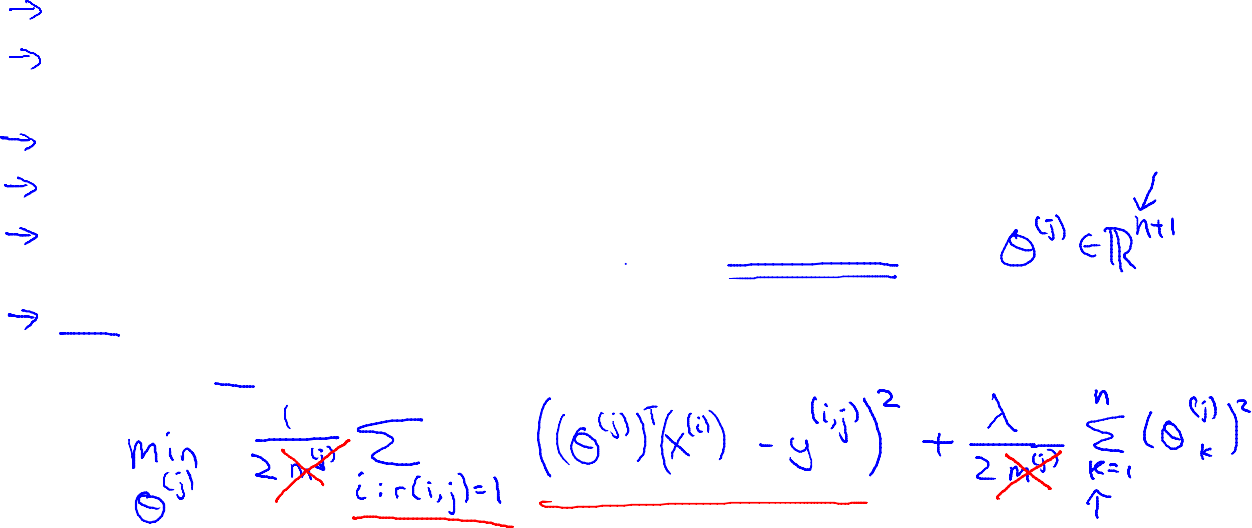 →
→
→
→
→ θ^(j) ∈ ℝ^(n+1)
→
min_θ^(j) 1/(2m^(j)) Σ_{i:r(i,j)=1} ((θ^(j))^T(x^(i)) - y^(i,j))^2 + λ/(2m^(j)) Σ_{k=1}^{n} (θ_k^(j))^2